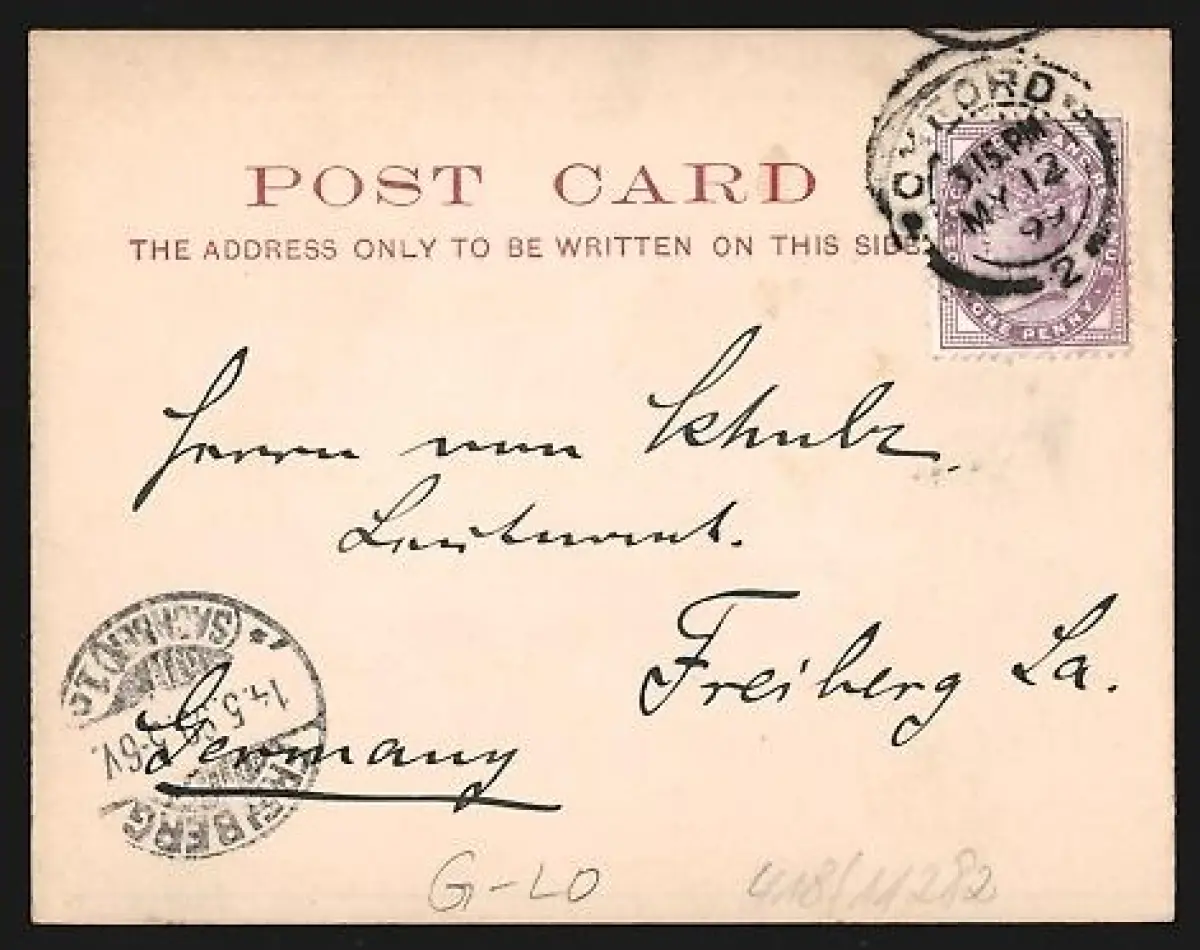 POST CARD
THE ADDRESS ONLY TO BE WRITTEN ON THIS SIDE.
OXFORD
3.15 PM
MY 12
99
2
ONE PENNY
Herrn von Schulz.
Leutnant.
Freiberg Sa.
Germany
FREIBERG
(SACHSEN) 1
14.5.
5-6V.
G-LO
418/11282